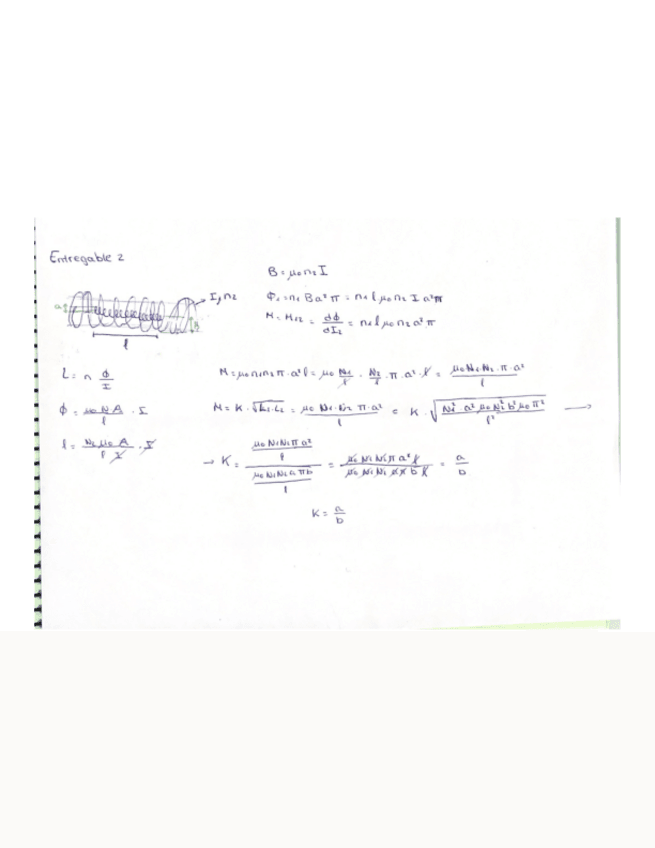 Entregable 2
B = μ₀ n₂ I
a
I, n₂
b
l
Φ₁ = n₁ B a² π = n₁ l μ₀ n₂ I a² π
M = M₁₂ = dϕ/dI₂ = n₁ l μ₀ n₂ a² π
L = n ϕ/I
M = μ₀ n₁ n₂ π · a² l = μ₀ N₁/l · N₂/l · π · a² · l = μ₀ N₁ N₂ · π · a² / l
ϕ = μ₀ N A / l · I
M = K · √L₁·L₂ = μ₀ N₁ · N₂ π · a² / l = K · √(N₁² a² μ₀ N₂² b² μ₀ π² / l²) →
→ K = (μ₀ N₁ N₂ π a² / l) / (μ₀ N₁ N₂ a π b / l) = μ₀ N₁ N₂ π a² l / μ₀ N₁ N₂ a π b l = a/b
K = a/b